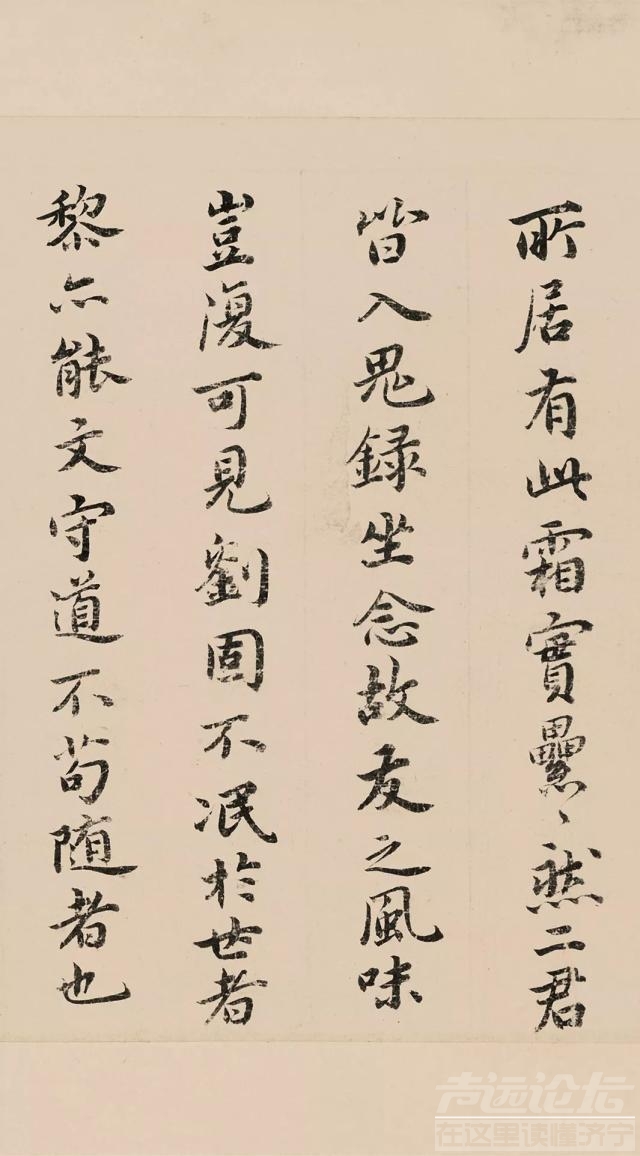 所居有此霜實纍〻然二君
皆入鬼錄坐念故友之風味
豈復可見劉固不泯於世者
黎亦能文守道不苟随者也
声远论坛
在这里读懂济宁